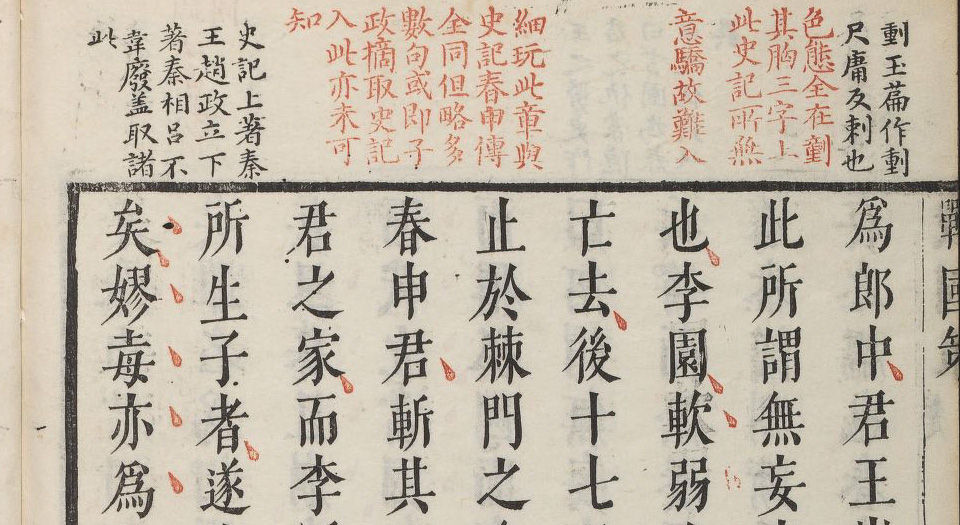 剚玉篇作剚
尺庸反刺也
色態全在劗
其胸三字上
此史記所無
意驕故難入
細玩此章與
史記春申傳
全同但略多
數句或即子
政摘取史記
入此亦未可
知
史記上著秦
王趙政立下
著秦相呂不
韋廢蓋取諸
此
戰國策
爲郎中君王
此所謂無妄
也李園軟弱
亡去後十七
止於棘門之
春申君斬其
君之家而李
所生子者遂
矣嫪毐亦爲